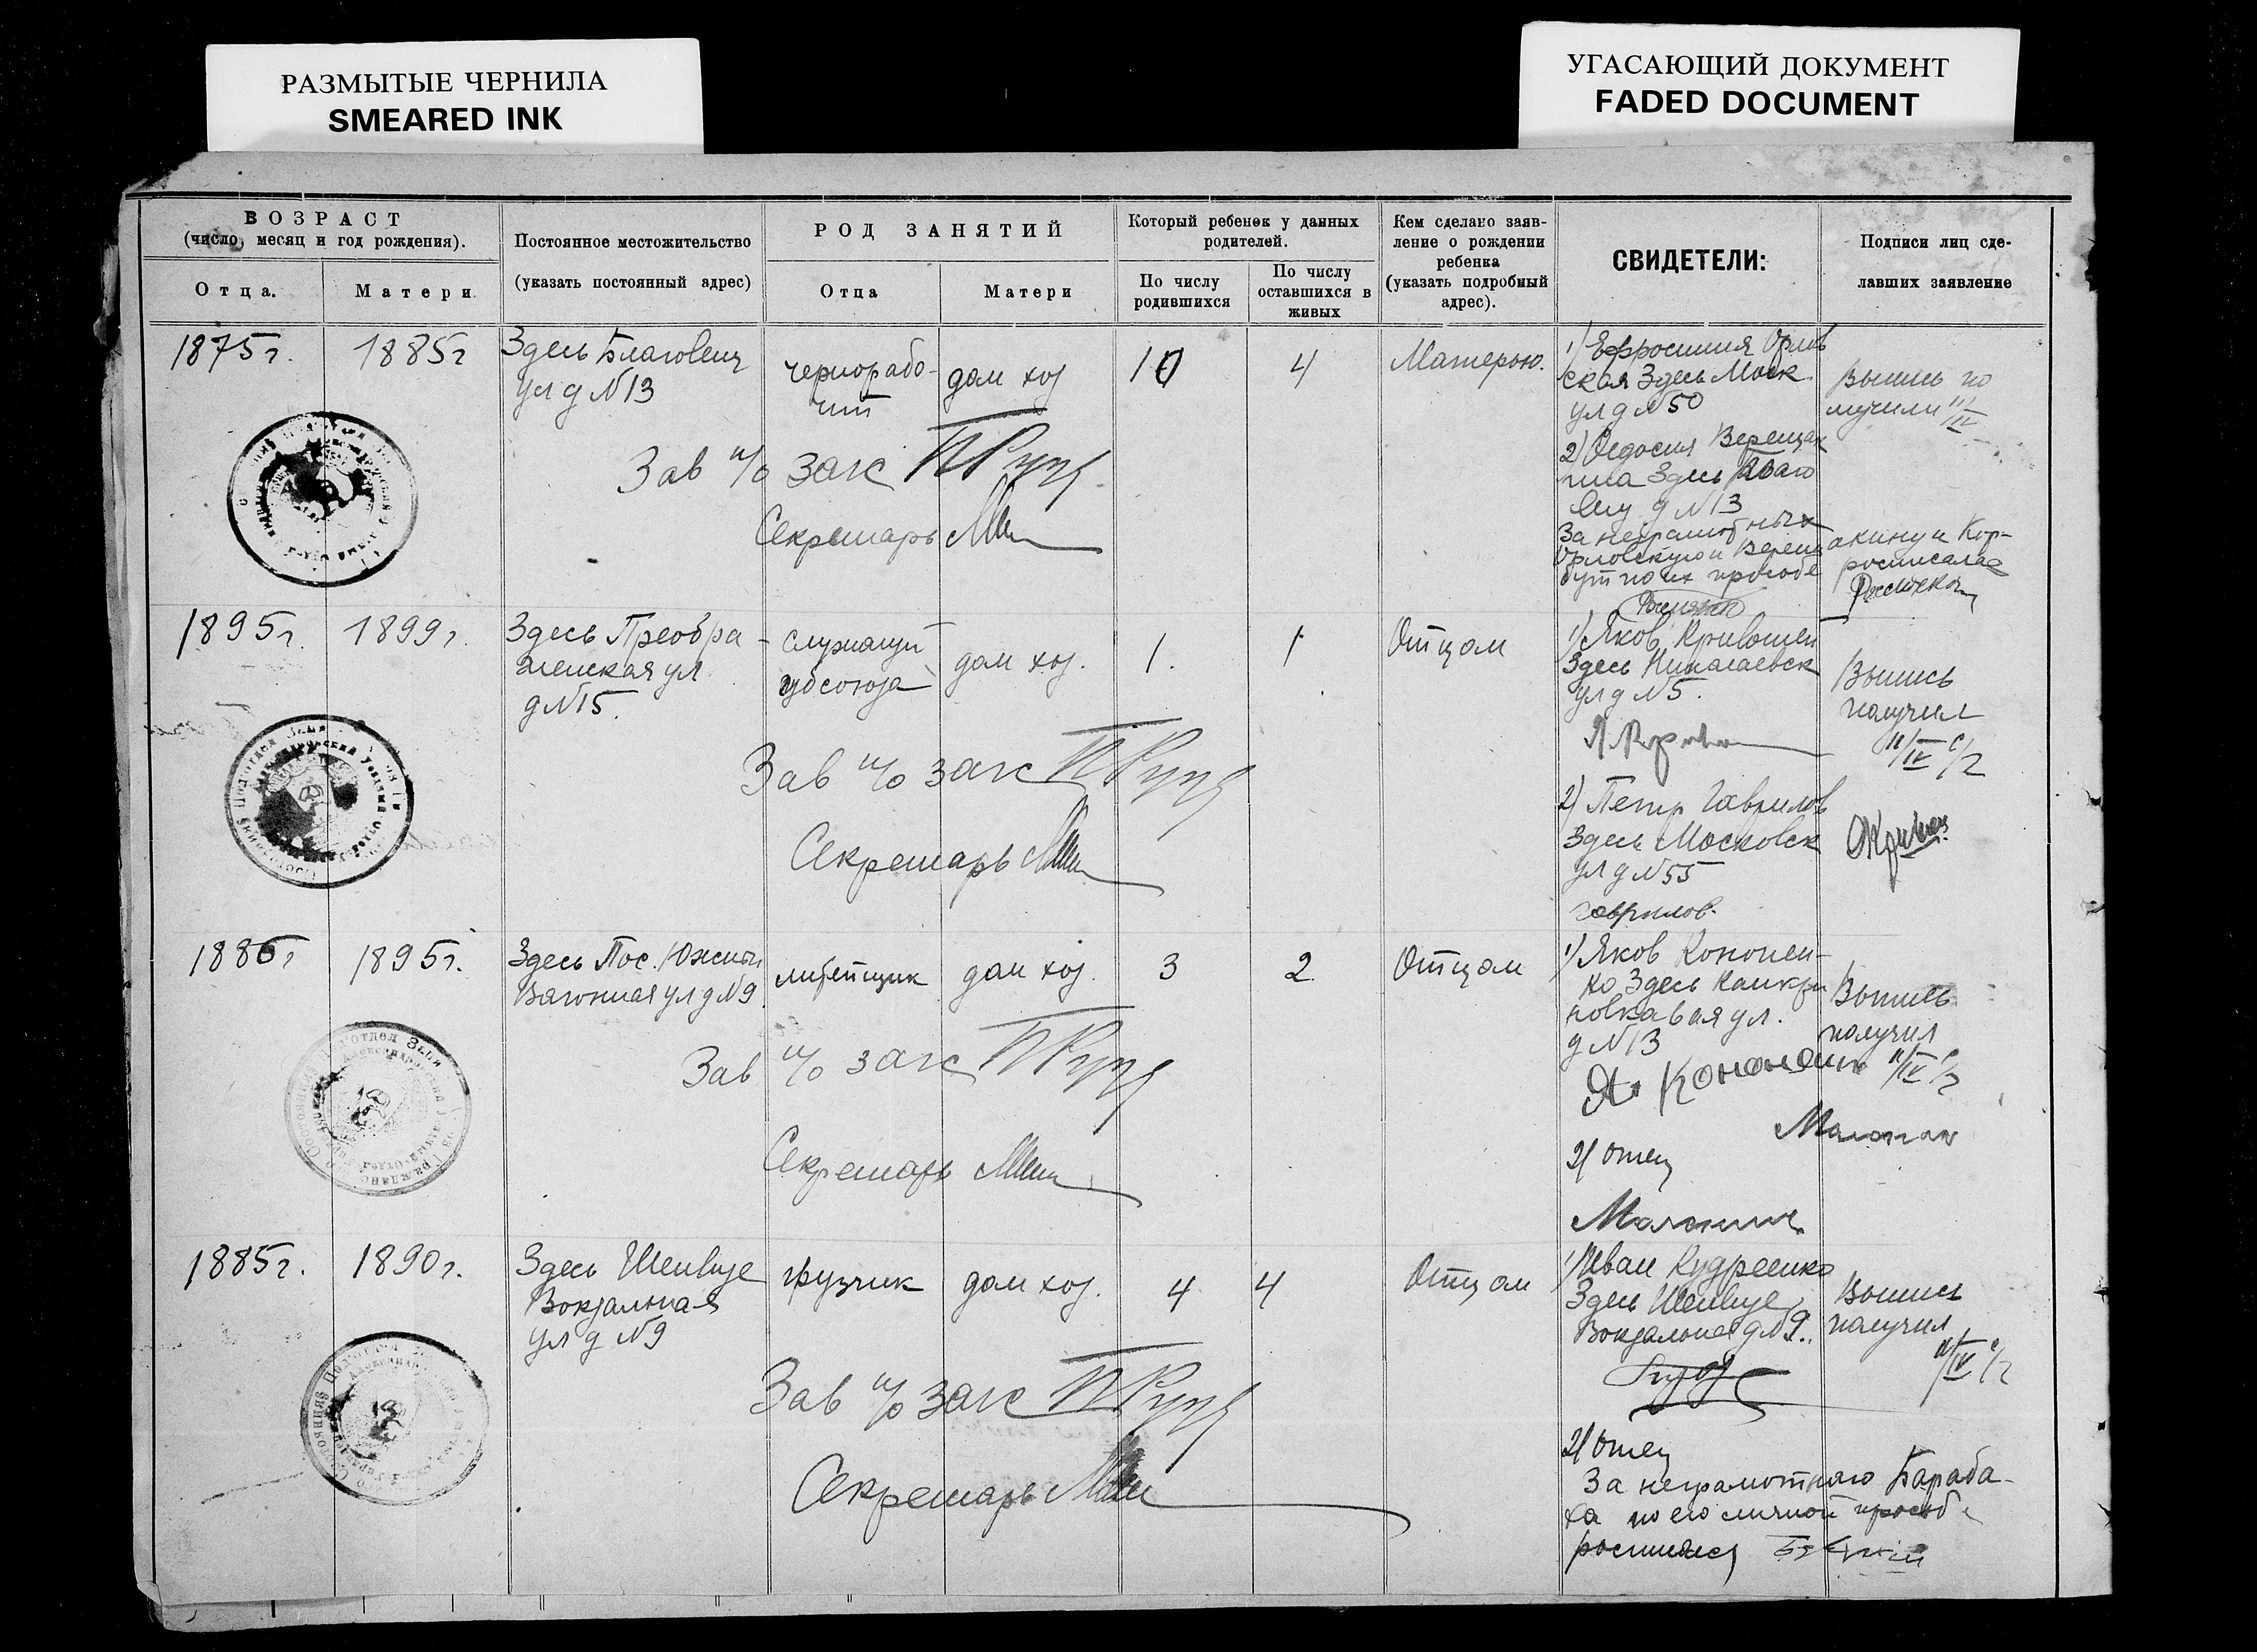 РАЗМЫТЫЕ ЧЕРНИЛА
SMEARED INK
УГАСАЮЩИЙ ДОКУМЕНТ
FADED DOCUMENT
ВОЗРАСТ
(число, месяц и год рождения).
Отца.
Матери
Постоянное местожительство
(указать постоянный адрес)
РОД ЗАНЯТИЙ
Отца
Матери
Который ребенок у данных
родителей.
По числу
родившихся
По числу
оставшихся в
живых
Кем сделано заяв-
ление о рождении
ребенка
(указать подробный
адрес).
СВИДЕТЕЛИ:
Подписи лиц сде-
лавших заявление
1875 г.
1885 г
Здесь Благовещ
ул д N 13
чернорабо-
дом хоз
10
4
Матерью.
1) Ефросиния Орлов
ская Здесь Моск
ул д N 50
2) Федосия Верещак
гина Здесь Благо
вещ д N 13
За неграмотных
Орловскую и Верещ
акину и Кор-
бут по их просьбе
росписалас
Выпись по
лучили 11/IV
Зав п/о загс
Секретарь
1895 г.
1899 г.
Здесь Преобра-
женская ул
д N 15.
служащий
губсоюза
дом хоз.
1.
1
Отцом
1) Яков Кривошеи
Здесь Николаевск
ул д N 5.
2) Петр Гаврилов
Здесь Московск
ул д N 55
Гаврилов.
Выпись
получил
11/IV с/г
Зав п/о загс
Секретарь
1886 г
1895 г.
Здесь Пос. Южный
Вагонная ул д N 9
литейщик
дом хоз.
3
2
Отцом
1) Яков Кононен-
ко Здесь
ул.
д N 13
Я. Кононенко
2) Отец
Выпись
получил
11/IV с/г
Зав п/о загс
Секретарь
1885 г.
1890 г.
Здесь Шенвизе
Вокзальная
ул д N 9
грузчик
дом хоз.
4
4
Отцом
1) Иван Кудреенко
Здесь Шенвизе
Вокзальная д N 9.
2) Отец
За неграмотного Бараба-
ха по его личной просьбе
росписался
Выпись
получил
11/IV с/г
Зав п/о загс
Секретарь